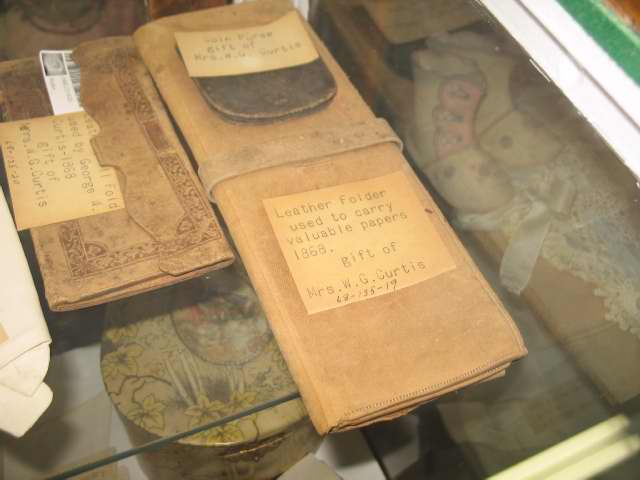 Coin Purse
gift of
Mrs.W.G. Curtis
ll Fold
used by George W.
Curtis-1868
gift of
Mrs.W.G.Curtis
Leather Folder
used to carry
valuable papers
1868.
gift of
Mrs.W.G.Curtis
68-135-19